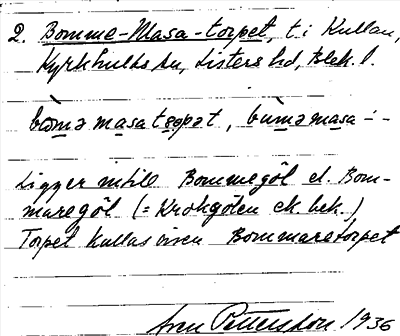 2. Bomme-Masa-torpet, t. i Kullan,
Kyrkhults sn, Listers hd, Blek. l.
bòmə masatɵrpət, bùməmasa-:-
Ligger intill Bommegöl el. Bom-
maregöl (= Krokgölen ek. bek.)
Torpet kallas även Bommaretorpet
Sven Pettersson 1936